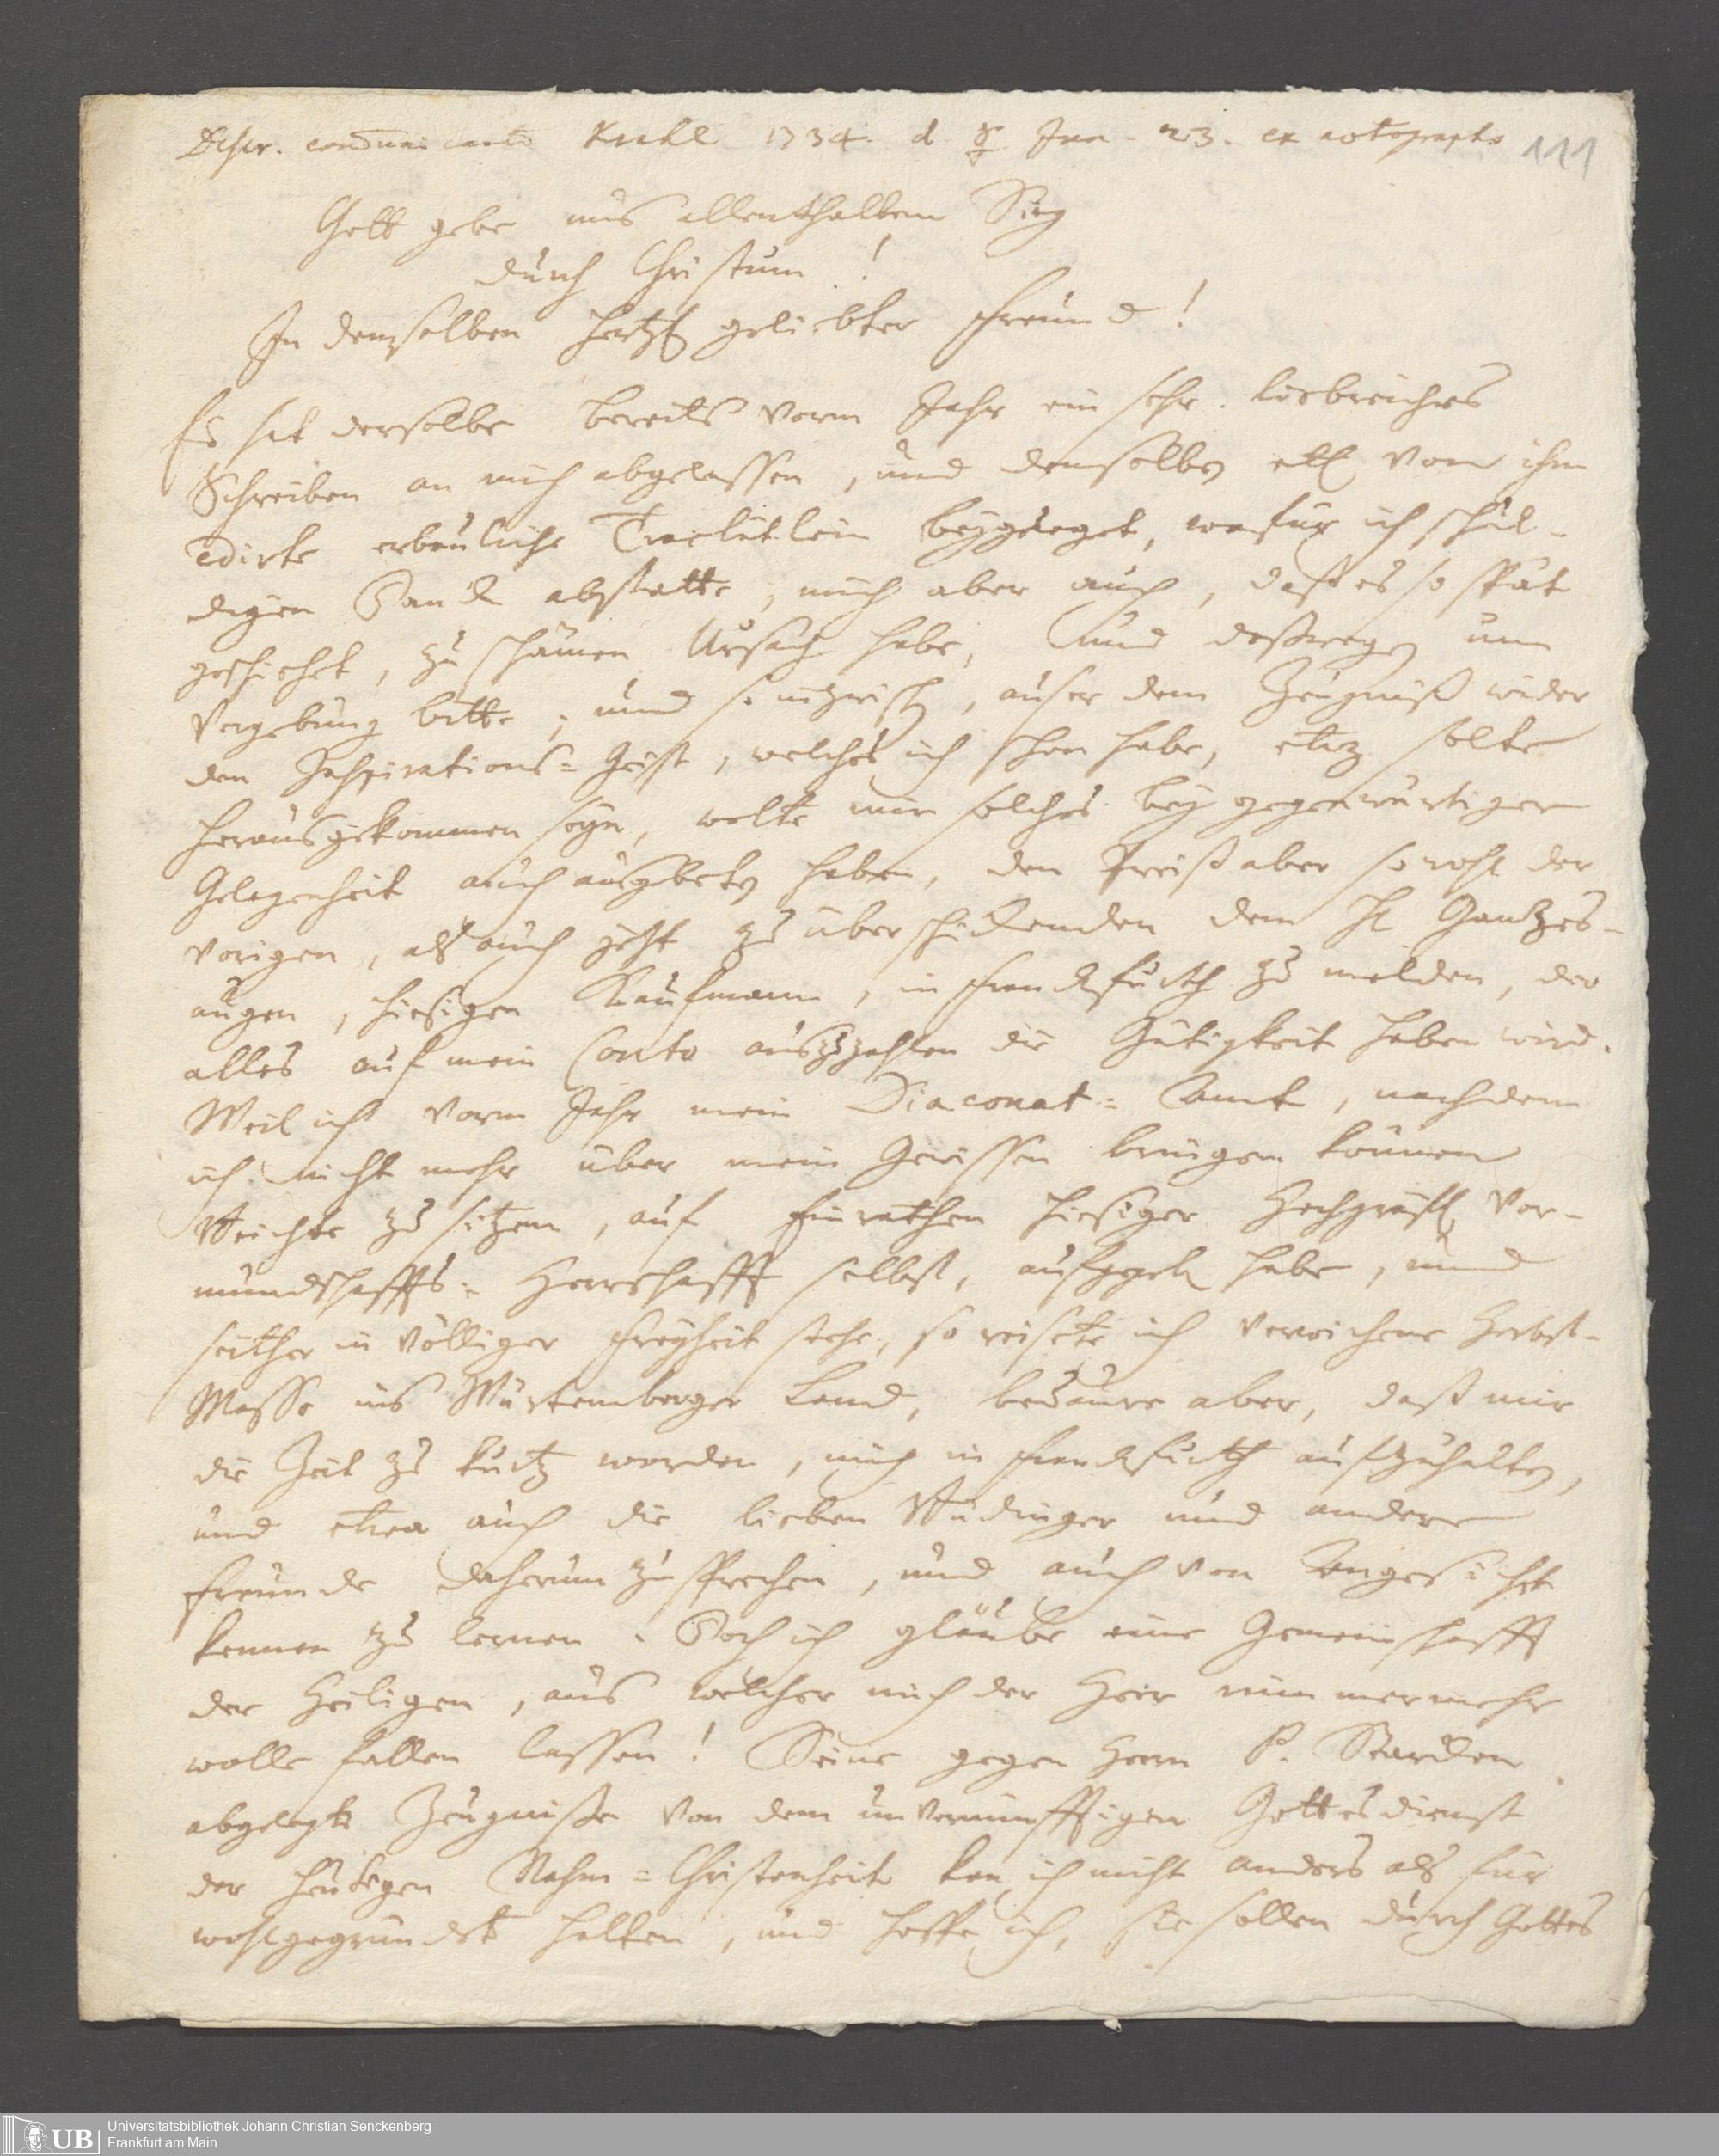 Descr. communicante Kuhl 1734. d ☿ Jun. 23. ex autographo
111
Gott gebe uns allenthalben Sieg
durch Christum!
In demselben hertzl geliebter Freund!
Es hat derselbe bereits vorm Jahr ein sehr liebreiches
Schreiben an mich abgelassen, und demselben etl von ihm
edirte erbauliche Tractätlein beygeleget, wofür ich schul-
digen Danck abstatte, mich aber auch, daß es so spät
geschiehet, zu schämen Ursach habe, und deßwegen um
Vergebung bitte; und so inzwisch, auser dem Zeugniß wider
den Inspirations-Geist, welches ich schon habe, etwz solte
herausgekommen seyn, wolte mir solches bey gegenwärtiger
Gelegenheit auch ausgebeten haben, den Preiß aber sowohl der
vorigen, als auch jetzt zu überschickenden dem H Gantzes-
augen, hiesigen Kaufmann, in Franckfurth zu melden, der
alles auf mein Conto auszuzahlen die Gütigkeit haben wird.
Weil ich vorm Jahr mein Diaconat-Amt, nachdem
ich nicht mehr über mein Gewissen bringen können
Beichte zu sitzen, auf Einrathen hiesiger Hochgräfl Vor-
mundschaffts-Herrschafft selbst, aufgegeb habe, und
seither in völliger Freyheit stehe, so reisete ich verwichene Herbst-
Messe ins Würtemberger Land, bedaure aber, daß mir
die Zeit zu kurtz worden, mich in Franckfurth aufzuhalten,
und etwa auch die lieben Büdinger und andere
Freunde daherum zu sprechen, und auch von Angesicht
kennen zu lernen. Doch ich gläube eine Gemeinschafft
der Heiligen, aus welcher mich der Herr nimmermehr
wolle fallen lassen! Seine gegen Herrn P. Starcken
abgelegte Zeugnisse von dem unvernünfftigen Gottesdienst
der heutigen Nahm-Christenheit kan ich nicht anders als für
wohlgegründet halten, und hoffe ich, sie sollen durch Gottes
UB
Universitätsbibliothek Johann Christian Senckenberg
Frankfurt am Main